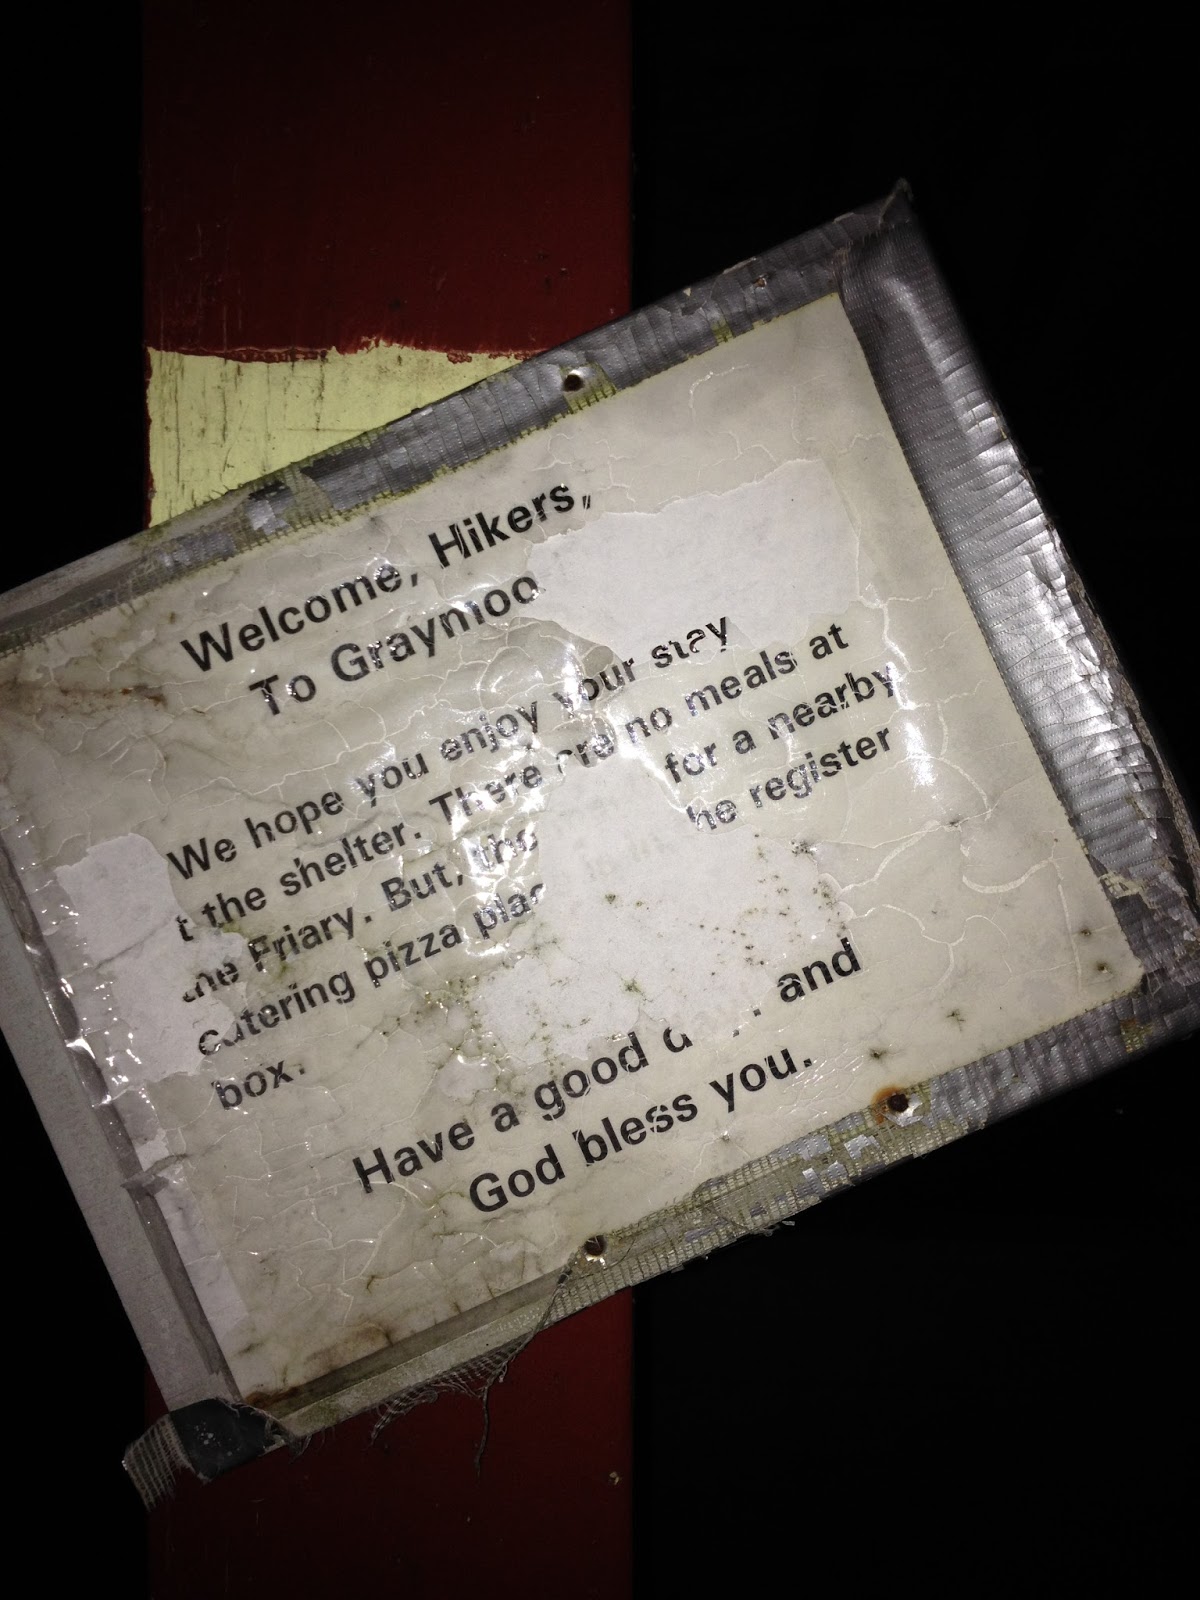 Welcome, Hikers,
To Graymoo
We hope you enjoy your stay
t the shelter. There are no meals at
the Friary. But, the for a nearby
catering pizza plac he register
box.
Have a good and
God bless you.